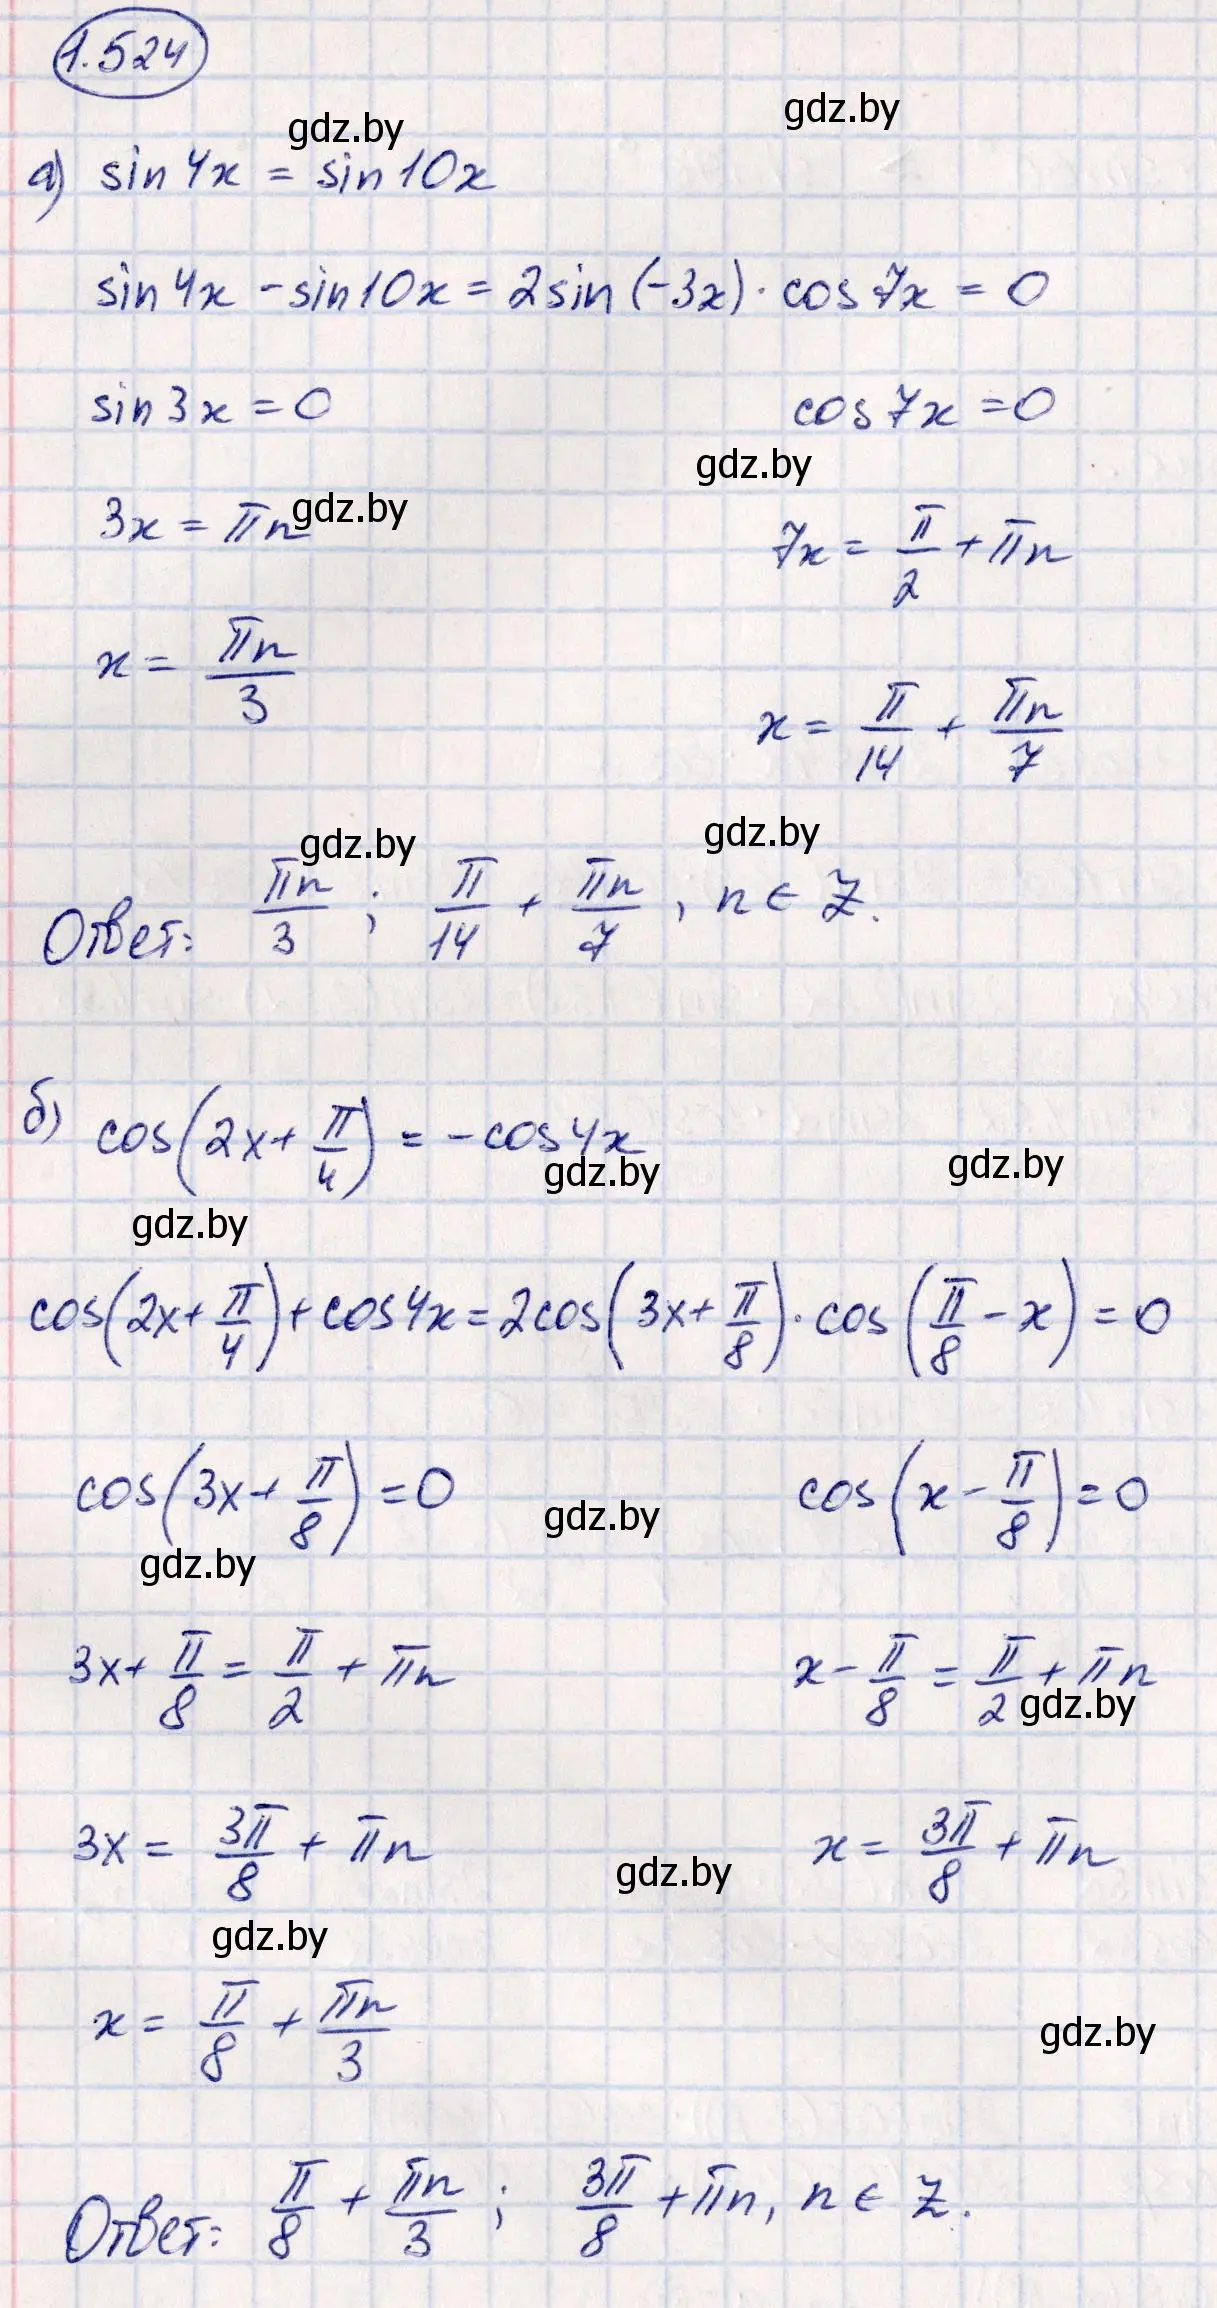 1.524
gdz.by
gdz.by
а) sin4x = sin10x
sin4x - sin10x = 2sin(-3x) · cos7x = 0
sin3x = 0 cos7x = 0
gdz.by
gdz.by
3x = πn 7x = π/2 + πn
x = πn/3 x = π/14 + πn/7
gdz.by
gdz.by
Ответ: πn/3 ; π/14 + πn/7 , n ∈ Z.
б) cos(2x + π/4) = -cos4x
gdz.by
gdz.by
gdz.by
cos(2x + π/4) + cos4x = 2cos(3x + π/8) · cos(π/8 - x) = 0
cos(3x + π/8) = 0 cos(x - π/8) = 0
gdz.by
gdz.by
3x + π/8 = π/2 + πn x - π/8 = π/2 + πn
gdz.by
3x = 3π/8 + πn x = 3π/8 + πn
gdz.by
gdz.by
x = π/8 + πn/3
gdz.by
Ответ: π/8 + πn/3 ; 3π/8 + πn, n ∈ Z.